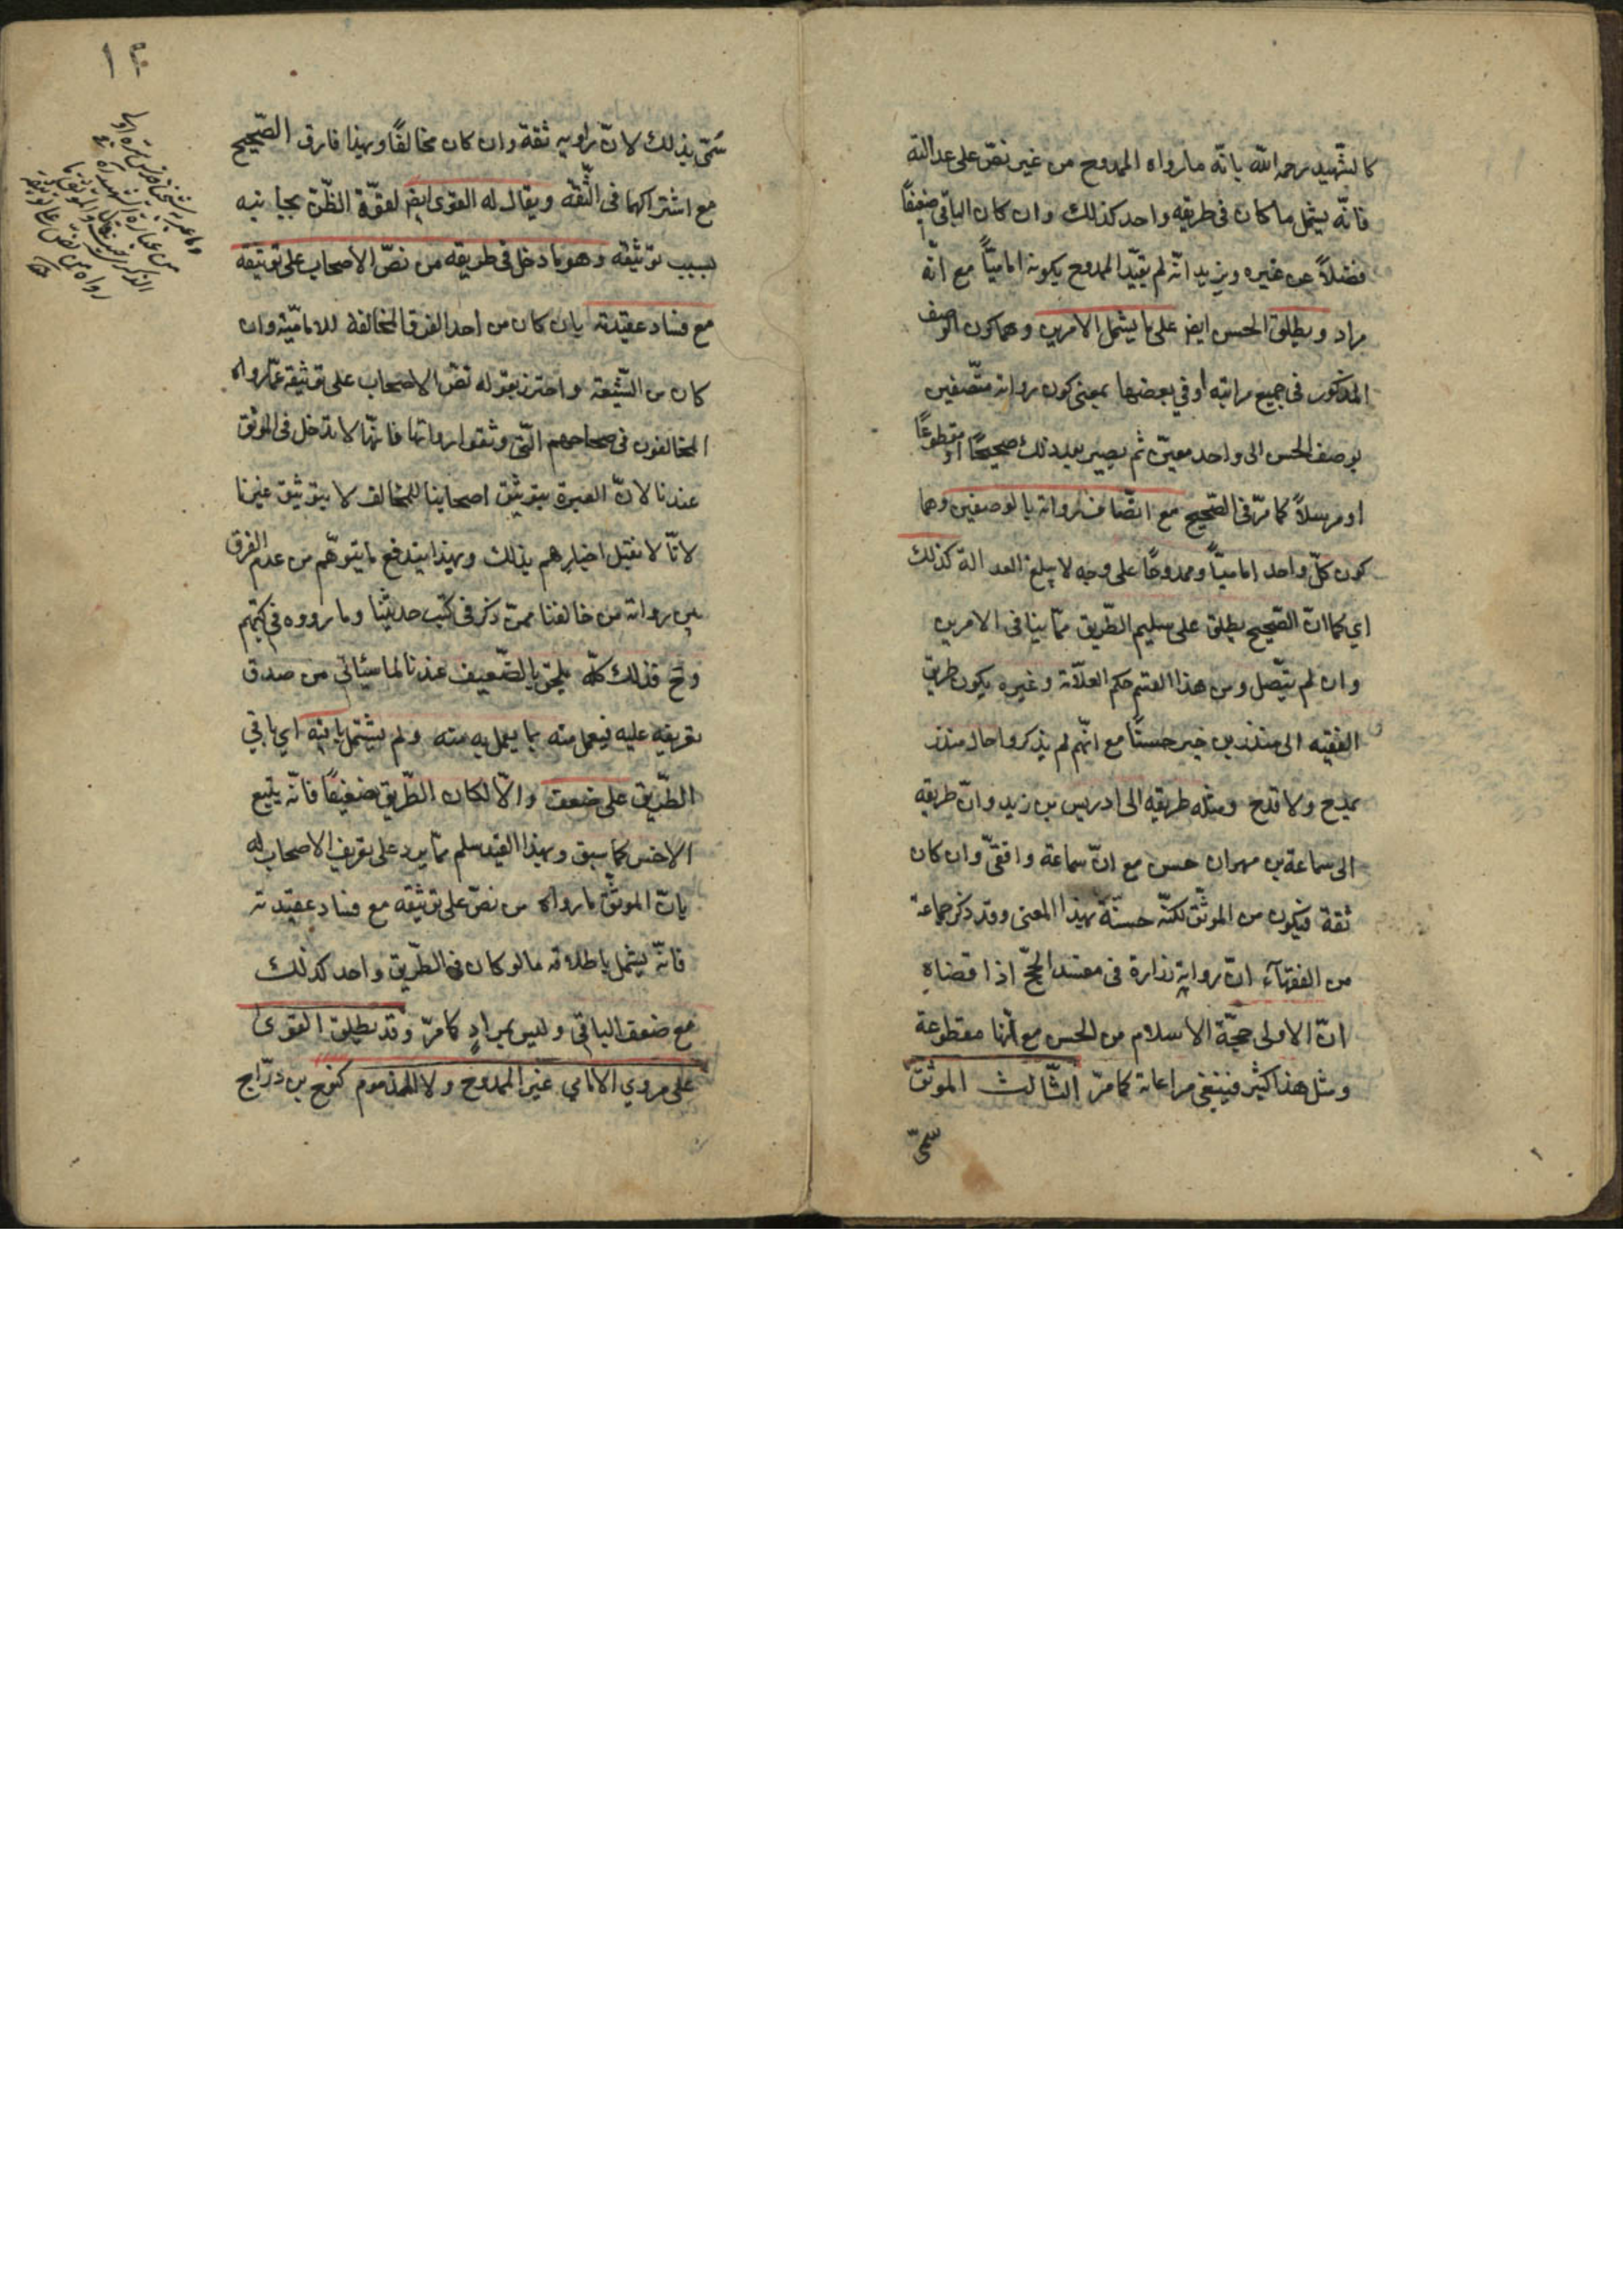 كالشّهيد رحمه الله بانّه ما رواه الممدوح من غير نصّ على عدالته
فانّه يشمل ما كان فى طريقه واحد كذلك وان كان الباقي ضعيفًا
فضلاً عن غيره ويزيد انّه لم يقيّد الممدوح بكونه اماميّاً مع انّه
مراد ويطلق الحسن ايض على ما يشمل الامرين وهما كون الوصف
المذكور فى جميع مراتبه او في بعضها بمعنى كون رواته متّصفين
بوصف الحسن الى واحد معيّن ثم يصير بعد ذلك صحيحًا او مقطوعًا
او مرسلاً كما مرّ فى الصّحيح مع اتّصاف رواته بالوصفين وهما
كون كلّ واحد اماميّاً وممدوحًا على وجه لا يبلغ العدالة كذلك
اي كما انّ الصّحيح يطلق على سليم الطّريق ممّا ينافى الامرين
وان لم يتّصل ومن هذا القسم حكم العلاّمة وغيره بكون طريق
الفقيه الى منذر بن جبير حسنًا مع انّهم لم يذكروا حال منذر
بمدح ولا قدح ومثله طريقه الى ادريس بن زيد وانّ طريقه
الى سماعة بن مهران حسن مع انّ سماعة واقفيّ وان كان
ثقة فيكون من الموثّق لكنّه حسنة بهذا المعنى وقد ذكر جماعة
من الفقهآء انّ رواية زرارة فى مفسد الحجّ اذا قضاه
انّ الاولى حجّة الاسلام من الحسن مع انّها مقطوعة
ومثل هذا كثير فينبغى مراعاته كما مرّ الثّالث الموثّق
سمّى
١٣
سُمّى بذلك لانّ راويه ثقة وان كان مخالفًا وبهذا فارق الصّحيح
مع اشتراكهما فى الثّقة ويقال له القوى ايض لقوّة الظّنّ بجانبه
بسبب توثيقه وهو ما دخل فى طريقه من نصّ الأصحاب على توثيقه
مع فساد عقيدته بان كان من احد الفرق المخالفة للاماميّة وان
كان من الشّيعة واحترز بقوله نصّ الاصحاب على توثيقه عمّا رواه
المخالفون فى صحاحهم الّتى وثّقوا رواتها فانّها لا تدخل فى الموثق
عندنا لانّ العبرة بتوثيق اصحابنا للمخالف لا بتوثيق غيرنا
لانّا لا نقبل اخبارهم بذلك وبهذا يندفع ما يتوهّم من عدم الفرق
بين رواته من خالفنا ممّن ذكر فى كتب حديثنا وما رووه في كتبهم
وح فذلك كلّه يلحق بالضّعيف عندنا لما سيأتى من صدق
تعريفه عليه فيعمل منه بما يعمل به منه ولم يشتمل باقيه اي باقي
الطّريق على ضعف والاّ لكان الطّريق ضعيفًا فانّه يتبع
الاخسّ كما سبق وبهذا القيد سلم ممّا يرد على تعريف الاصحاب له
بانّ الموثّق ما رواه من نصّ على توثيقه مع فساد عقيدته
فانّه يشمل باطلاقه ما لو كان فى الطّريق واحد كذلك
مع ضعف الباقي وليس بمرادٍ كما مرّ وقد يطلق القوى
على مروي الامامي غير الممدوح ولا المذموم كنوح بن درّاج